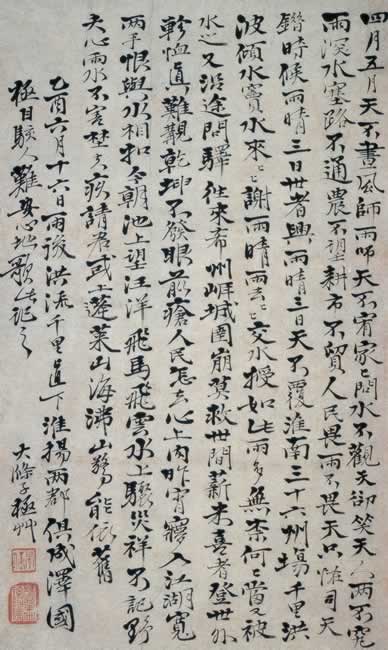 四月五月天不晝風師雨師天不宥家〻閉水不觀天卻笑天人兩不究
雨溟水塞路不通農不望耕市不貿人民畏雨不畏天只恠司天
錯時候雨晴三日世者興雨晴三日天不覆淮南三十六州場千里洪
波傾水竇水來〻謝雨晴雨去〻交水授如此雨多無柰何〻當又被
水之又沿途閉驛往來希州崕城圍崩莫救世間薪米喜者登世外
軫恤真難觀乾坤不發眼前瘡人民怎去心上肉昨宵入江湖寬
兩手恨與水相扣今朝池上望汪洋飛馬飛雲水上驟災祥不記野
夫心雨水不害埜疾請君試上蓬萊山海沸山勢能依舊
乙酉六月十六日雨後洪流千里直下淮揚兩都俱成澤國
極目駭人難安心地歌此記之
大滌子極艸